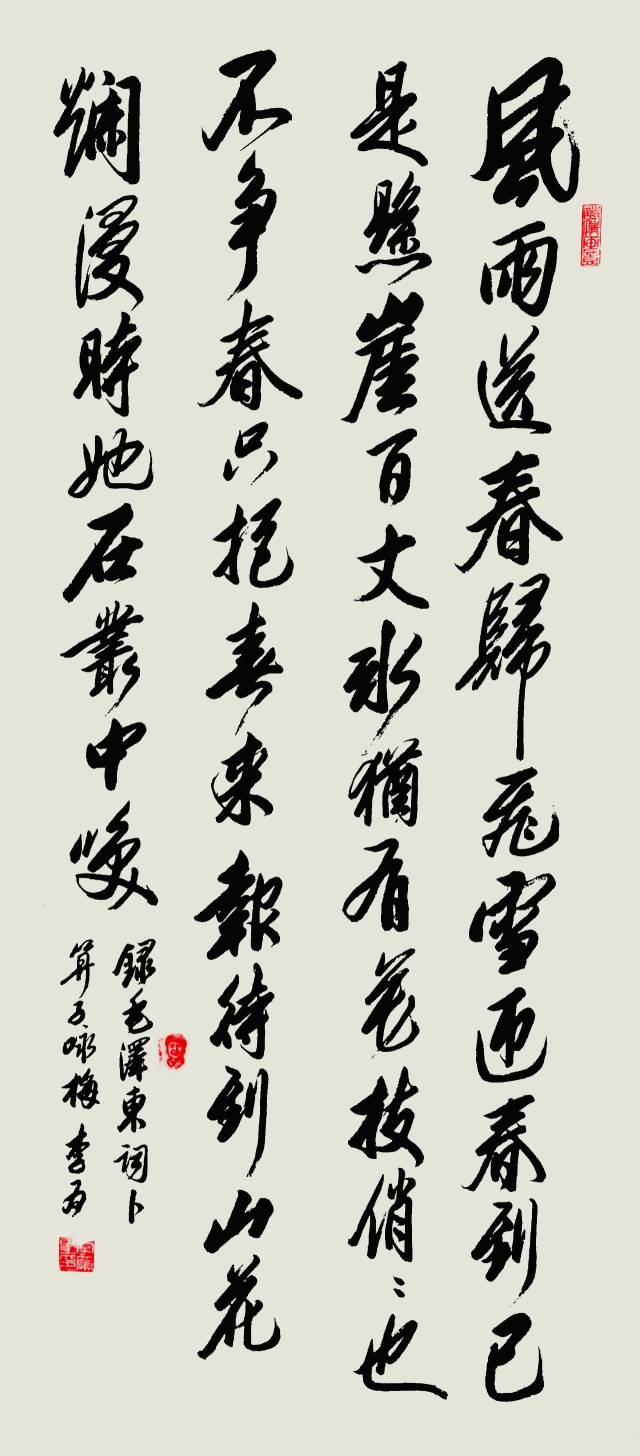 風雨送春歸飛雪迎春到已
是懸崖百丈冰猶有花枝俏〻也
不争春只把春来報待到山花
爛漫時她在叢中咲
録毛澤東詞卜
算子咏梅 李